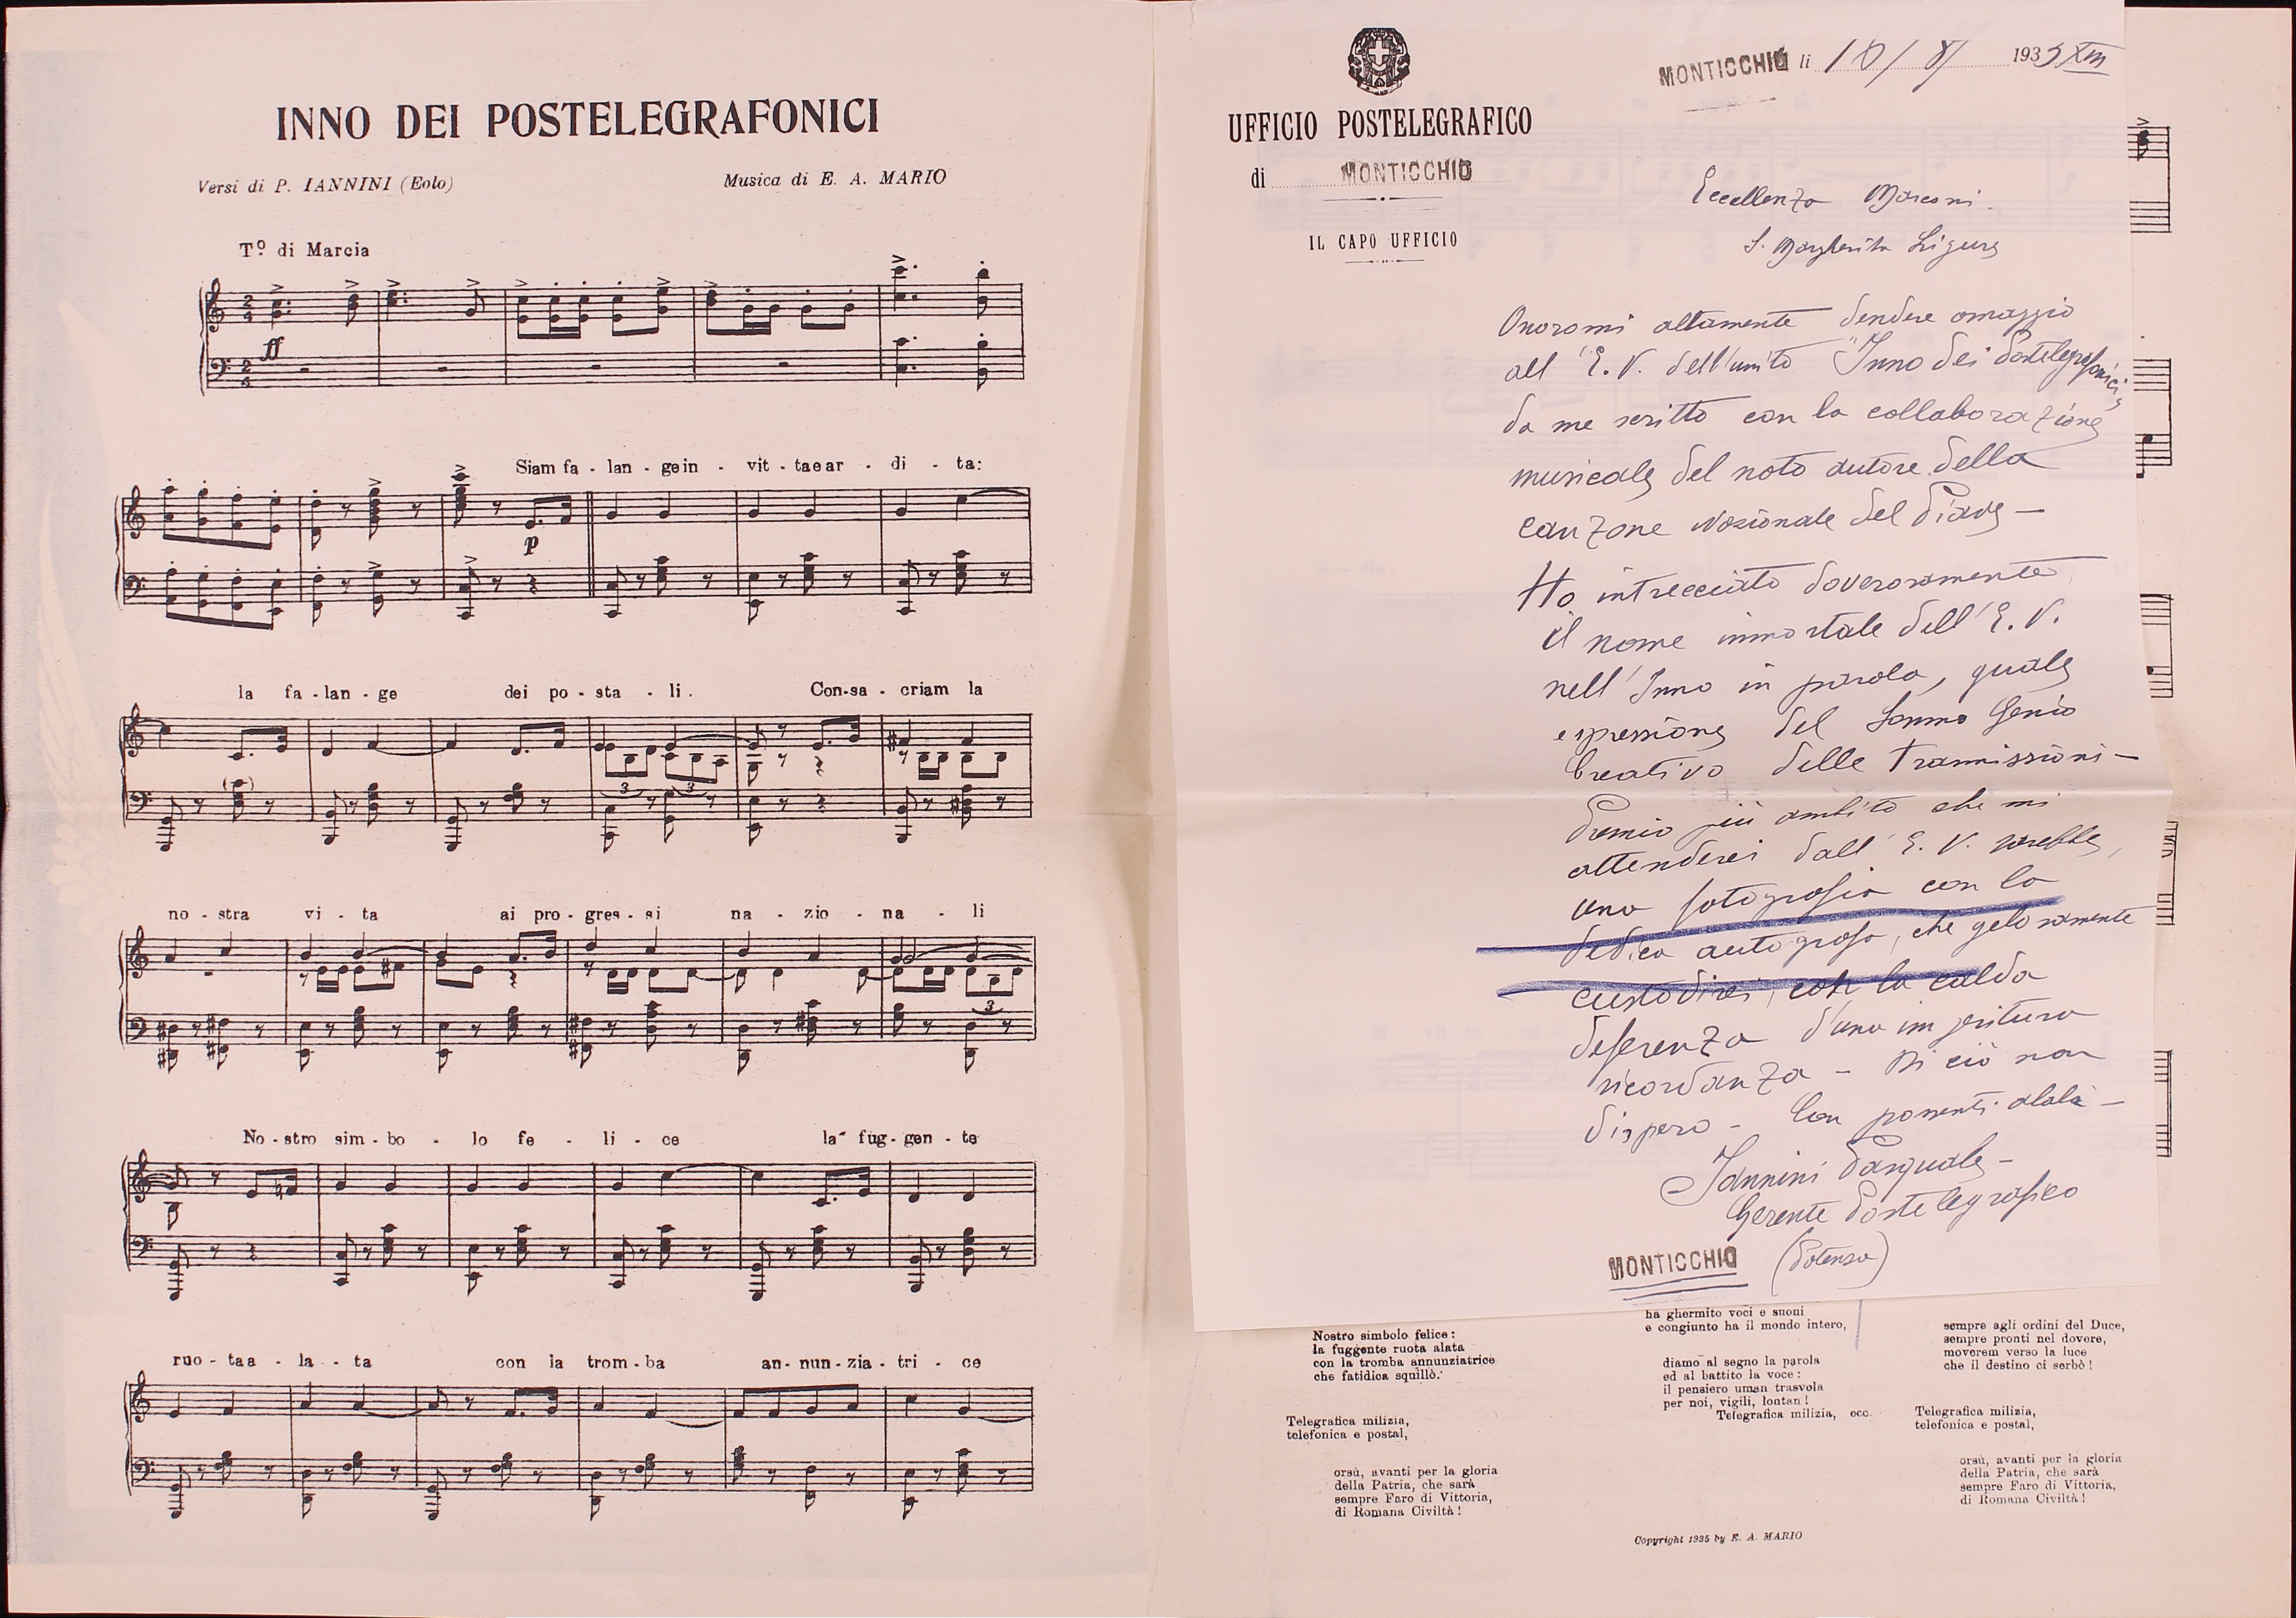 INNO DEI POSTELEGRAFONICI
Versi di P. IANNINI (Eolo)
Musica di E. A. MARIO
Tº. di Marcia
ff
Siam fa - lan - ge in - vit - ta e ar - di - ta:
p
la fa - lan - ge dei po - sta - li. Con - sa - criam la
3 3
no - stra vi - ta ai pro - gres - si na - zio - na - li
3
No - stro sim - bo - lo fe - li - ce la fug - gen - te
ruo - ta a - la - ta con la trom - ba an - nun - zia - tri - ce
UFFICIO POSTELEGRAFICO
di MONTICCHIO
IL CAPO UFFICIO
MONTICCHIO li 10/8/ 1935 XIII
Eccellenza Marconi.
S. Margherita Ligure
Onoromi altamente rendere omaggio
all'E. V. dell'unito "Inno dei Postelegrafonici"
da me scritto con la collaborazione
musicale del noto autore della
canzone Nazionale del Piave —
Ho intrecciato doverosamente
il nome immortale dell'E. V.
nell'Inno in parola, quale
espressione del Sommo Genio
Creativo delle Trasmissioni —
Premio più ambito che mi
attenderei dall'E. V. sarebbe,
una fotografia con la
dedica autografa, che gelosamente
custodirei, con la calda
deferenza d'una imperitura
ricordanza — Di ciò non
dispero — Con possenti alalà —
Iannini Pasquale —
Gerente Postelegrafico
MONTICCHIO (Potenza)
Nostro simbolo felice:
la fuggente ruota alata
con la tromba annunziatrice
che fatidica squillò.
Telegrafica milizia,
telefonica e postal,
orsù, avanti per la gloria
della Patria, che sarà
sempre Faro di Vittoria,
di Romana Civiltà!
ha ghermito voci e suoni
e congiunto ha il mondo intero,
diamo al segno la parola
ed al battito la voce:
il pensiero uman trasvola
per noi, vigili, lontan!
Telegrafica milizia, ecc.
sempre agli ordini del Duce,
sempre pronti nel dovere,
moverem verso la luce
che il destino ci serbò!
Telegrafica milizia,
telefonica e postal,
orsù, avanti per la gloria
della Patria, che sarà
sempre Faro di Vittoria,
di Romana Civiltà!
Copyright 1935 by E. A. MARIO